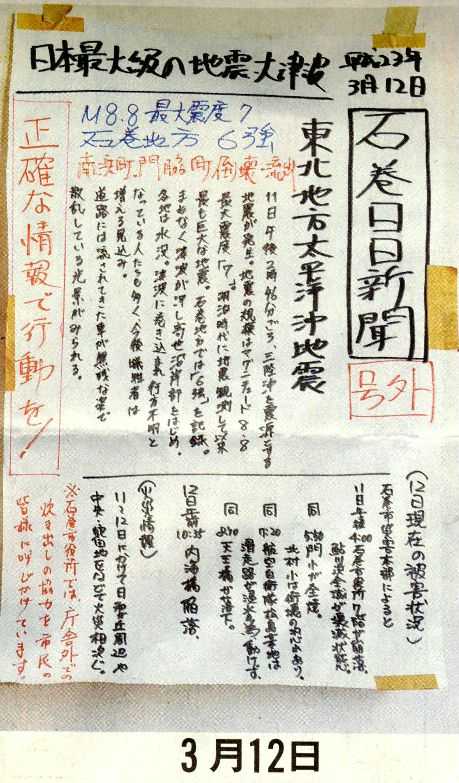 日本最大級の地震大津波
平成23年
3月12日
石巻日日新聞
号外
M8.8 最大震度7
石巻地方 6強
南浜町、門脇町倒壊・流出
東北地方太平洋沖地震
11日午後2時46分ごろ、三陸沖を震源とする
地震が発生。地震の規模はマグニチュード8・8
最大震度「7」。明治時代に地震観測して以来
最も巨大な地震。石巻地方では「6強」を記録。
まもなく津波が押し寄せ沿岸部をはじめ、
各地は水没。津波に巻き込まれ行方不明と
なっている人たちも多く、今後犠牲者は
増える見込み。
道路には流されてきた車が無残な姿で
散乱している光景がみられる。
正確な情報で行動を!
(12日現在の被害状況)
石巻市災害本部によると
11日午後4:00石巻市役所
鮎川浜全域が壊滅状態。
同 5:30門小が全焼。
北村小
同 7:20航空自衛隊松島基地は
滑走路が浸水の為、動けず。
同 8:40 天王橋が落下。
12日午前10:35 内海橋陥落。
(火災情報)
11〜12日にかけて日和が丘周辺や
中央、蛇田地区などで火災相次ぐ。
※石巻市役所では、庁舎外での
炊き出しの協力を市民の
皆様に呼びかけています。
3月12日